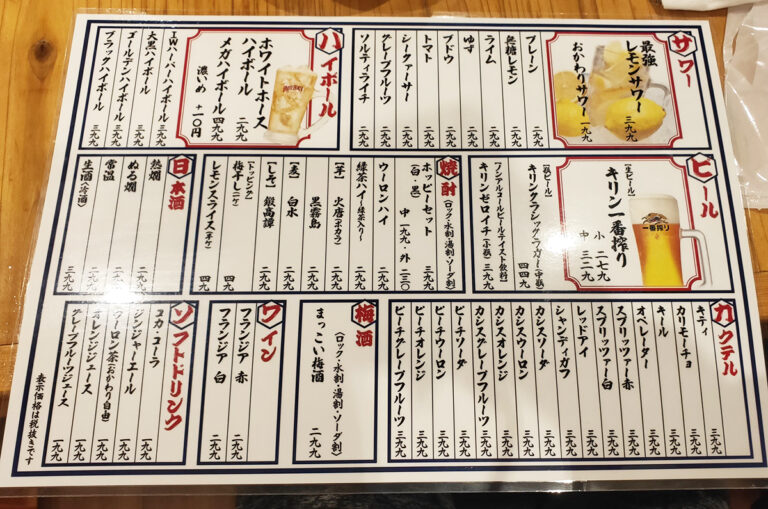 サワー
最強
レモンサワー
三九九
おかわりサワー 一九九
プレーン 二九九
無糖レモン 二九九
ライム 二九九
ゆず 二九九
ブドウ 二九九
トマト 二九九
シークァーサー 二九九
グレープフルーツ 二九九
ソルティライチ 二九九
ハイボール
ホワイトホース
ハイボール 二九九
メガハイボール 四九九
濃いめ +一〇〇円
IWハーパーハイボール 三九九
大黒ハイボール
ゴールデンハイボール
ブラックハイボール 三九九
ビール
【生ビール】
キリン一番搾り
小 二七九
中 三二九
一番搾り
【瓶ビール】
キリンクラシックラガー(中瓶) 四四九
【ノンアルコールビールテイスト飲料】
キリンゼロイチ(小瓶) 三九九
焼酎
(ロック・水割・湯割・ソーダ割)
ホッピーセット 三九九
(白・黒) 中 一九九・外 二三〇
ウーロンハイ 二九九
緑茶ハイ(緑茶入り) 二九九
【芋】 火唐(ポカラ) 二九九
黒霧島 二九九
【麦】 白水 二九九
【しそ】 鍛高譚 二九九
【トッピング】
梅干し(一ケ) 四九
レモンスライス(半ケ) 四九
日本酒
熱燗 二九九
ぬる燗 二九九
常温
生酒(冷酒) 三九九
カクテル
キティ 三九九
カリモーチョ 三九九
キール 三九九
オペレーター 三九九
スプリッツァー赤 三九九
スプリッツァー白 三九九
レッドアイ 三九九
シャンディガフ 三九九
カシスソーダ 三九九
カシスウーロン 三九九
カシスオレンジ 三九九
カシスグレープフルーツ 三九九
ピーチソーダ 三九九
ピーチウーロン 三九九
ピーチオレンジ 三九九
ピーチグレープフルーツ 三九九
梅酒
(ロック・水割・湯割・ソーダ割)
まっこい梅酒 二九九
ワイン
フランジア 赤 二九九
フランジア 白 二九九
ソフトドリンク
コカ・コーラ 一九九
ジンジャーエール 一九九
ウーロン茶(おかわり自由) 一九九
オレンジジュース 一九九
グレープフルーツジュース 一九九
表示価格は税抜きです